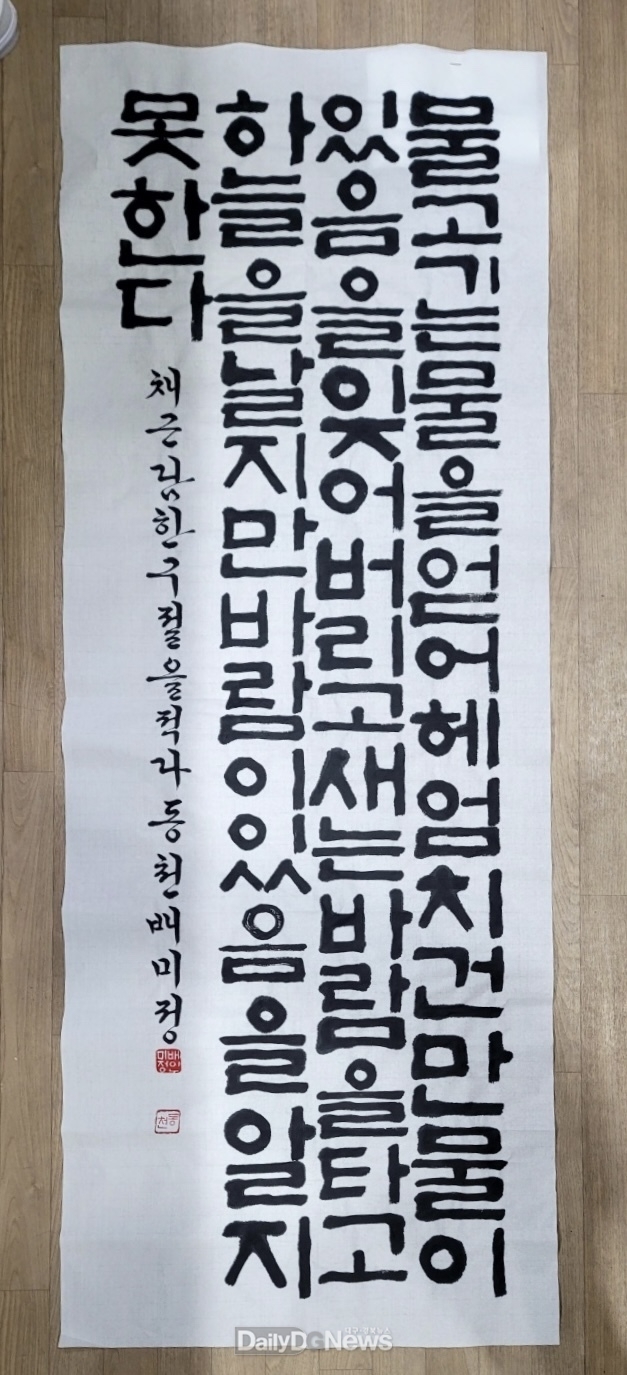 물고기는물을얻어헤엄치건만물이
있음을잊어버리고새는바람을타고
하늘을날지만바람이있음을알지
못한다
채근담한구절을적다동천배미정
배미정인
동천
대구·경북뉴스
DailyDGNews